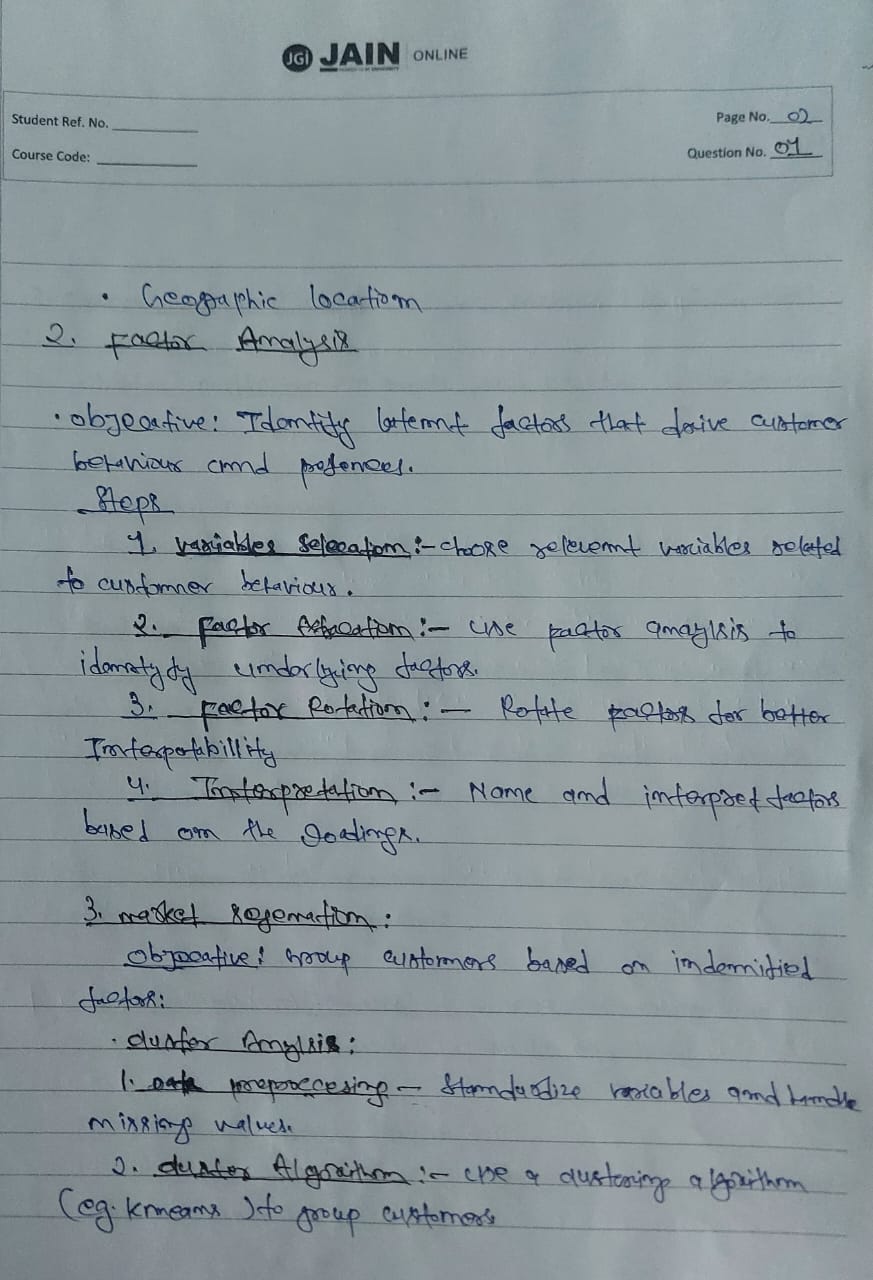 JGI JAIN ONLINE
Student Ref. No.
Page No. 02
Course Code:
Question No. 01
• Geographic location
2. Factor Analysis
• Objective: Identity latennt factors that drive customer
behaviour and prefences.
Steps
1. variables Selecation :- choose relevennt variables related
to custommer behaviour.
2. Factor :- Use factor amaylsis to
underlying factors.
3. Factor Rotation :- Rotate factors for better
4. Interpretation :- Name and interpret factors
based on the loadings.
3. market :
Objecative: Group customers based on
factors:
• cluster Amylsis:
1. Data preprocecesing - Standardize variables and handle
missing values.
2. cluster Algorithm :- use a clustering algorithm
(eg. kmeans) to group customers